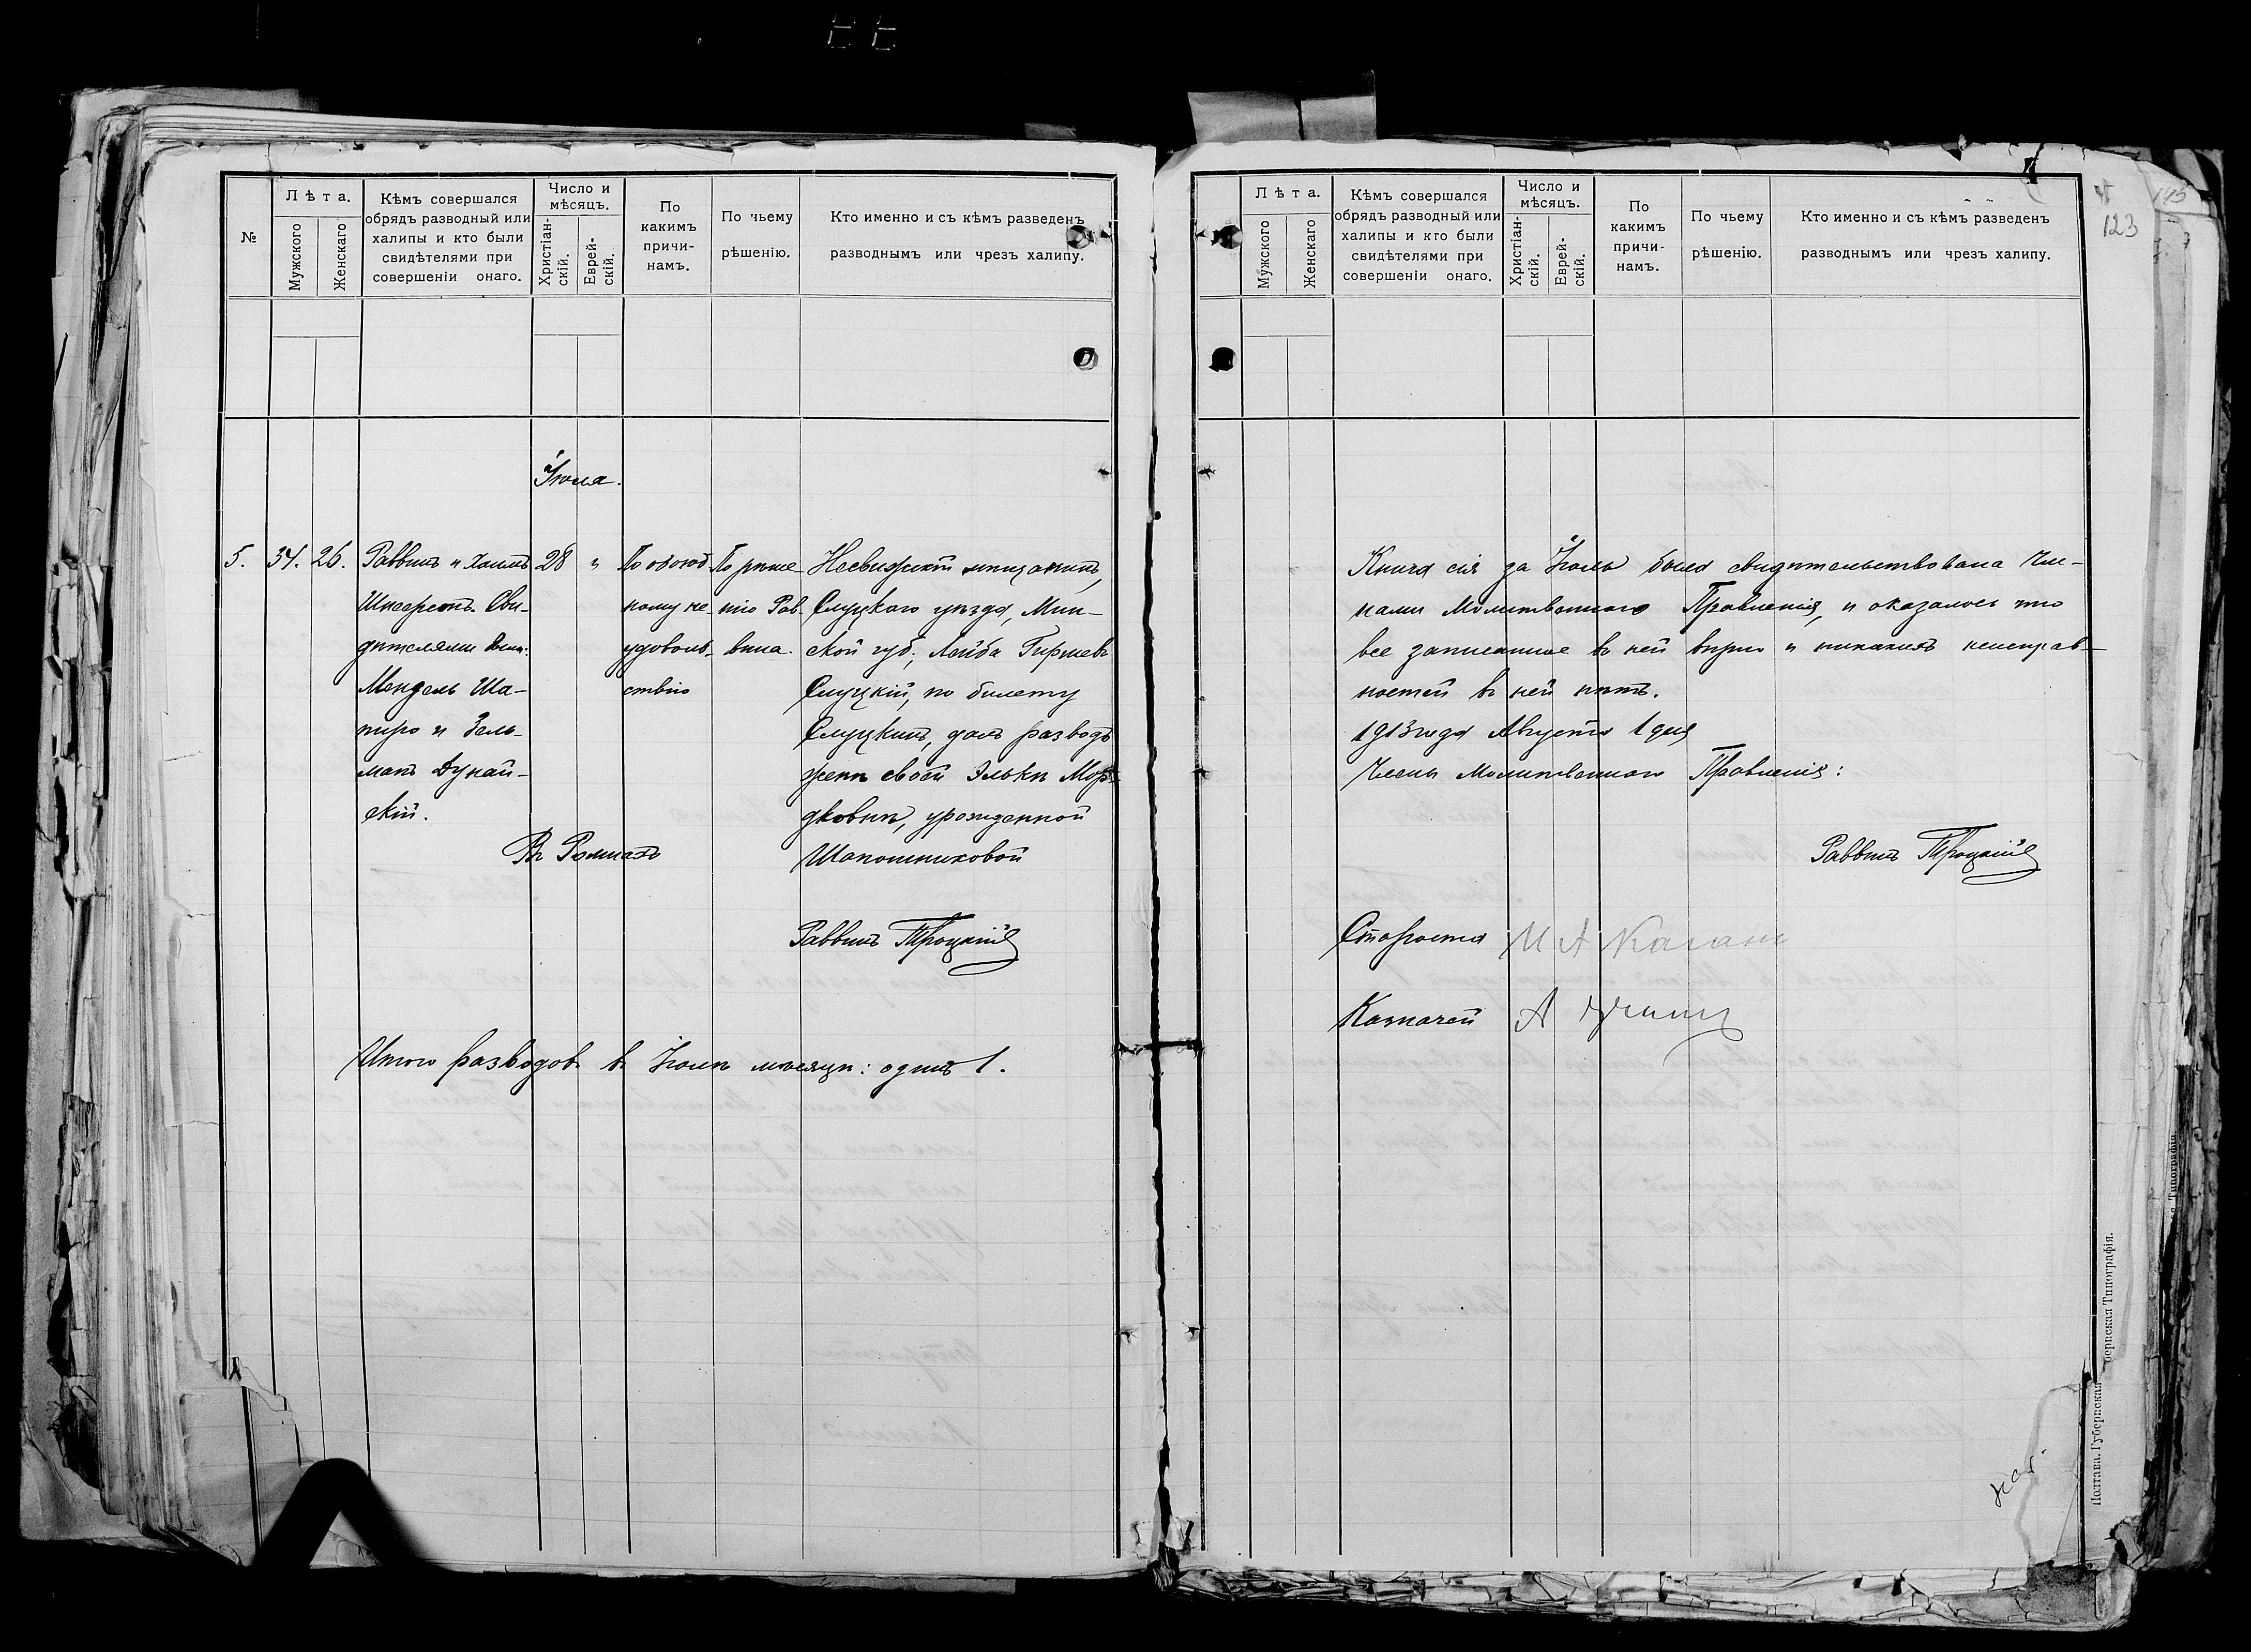 №
Лѣта.
Мужского
Женскаго
Кѣмъ совершался
обрядъ разводный или
халипы и кто были
свидѣтелями при
совершеніи онаго.
Число и
мѣсяцъ.
Христіан-
скій.
Еврей-
скій.
По
какимъ
причи-
намъ.
По чьему
рѣшенію.
Кто именно и съ кѣмъ разведенъ
разводнымъ или чрезъ халипу.
Іюля.
5.
34.
26.
Раввинъ и Хаимъ
Сви-
дѣтелями были:
Мендель Ша-
пиро и Зель-
манъ Дунай-
скій.
28
"
По обоюд
ному не-
удоволь-
ствію
По рѣше-
нію Рав-
вина.
Несвижскій мѣщанинъ,
Слуцкаго уѣзда, Мин-
ской губ., Лейба Гиршевъ
Слуцкій, по билету
Слуцкинъ, далъ разводъ
женѣ своей Элькѣ Мор-
дковнѣ, урожденной
Шапошниковой
Въ Ромнахъ
Раввинъ Троцкій
Итого разводовъ въ Іюлѣ мѣсяцѣ: одинъ 1.
Лѣта.
Мужского
Женскаго
Кѣмъ совершался
обрядъ разводный или
халипы и кто были
свидѣтелями при
совершеніи онаго.
Число и
мѣсяцъ.
Христіан-
скій.
Еврей-
скій.
По
какимъ
причи-
намъ.
По чьему
рѣшенію.
Кто именно и съ кѣмъ разведенъ
разводнымъ или чрезъ халипу.
123
Книга сія за Іюль была свидѣтельствована Чле-
нами Молитвеннаго Правленія, и оказалось что
все записанное въ ней вѣрно и никакихъ неисправ-
ностей въ ней нѣтъ.
1913 года Августа 1 дня
Члены Молитвеннаго Правленія:
Раввинъ Троцкій
Староста И А Каганъ
Казначей А
Полтава. Губернская
бернская Типографія.